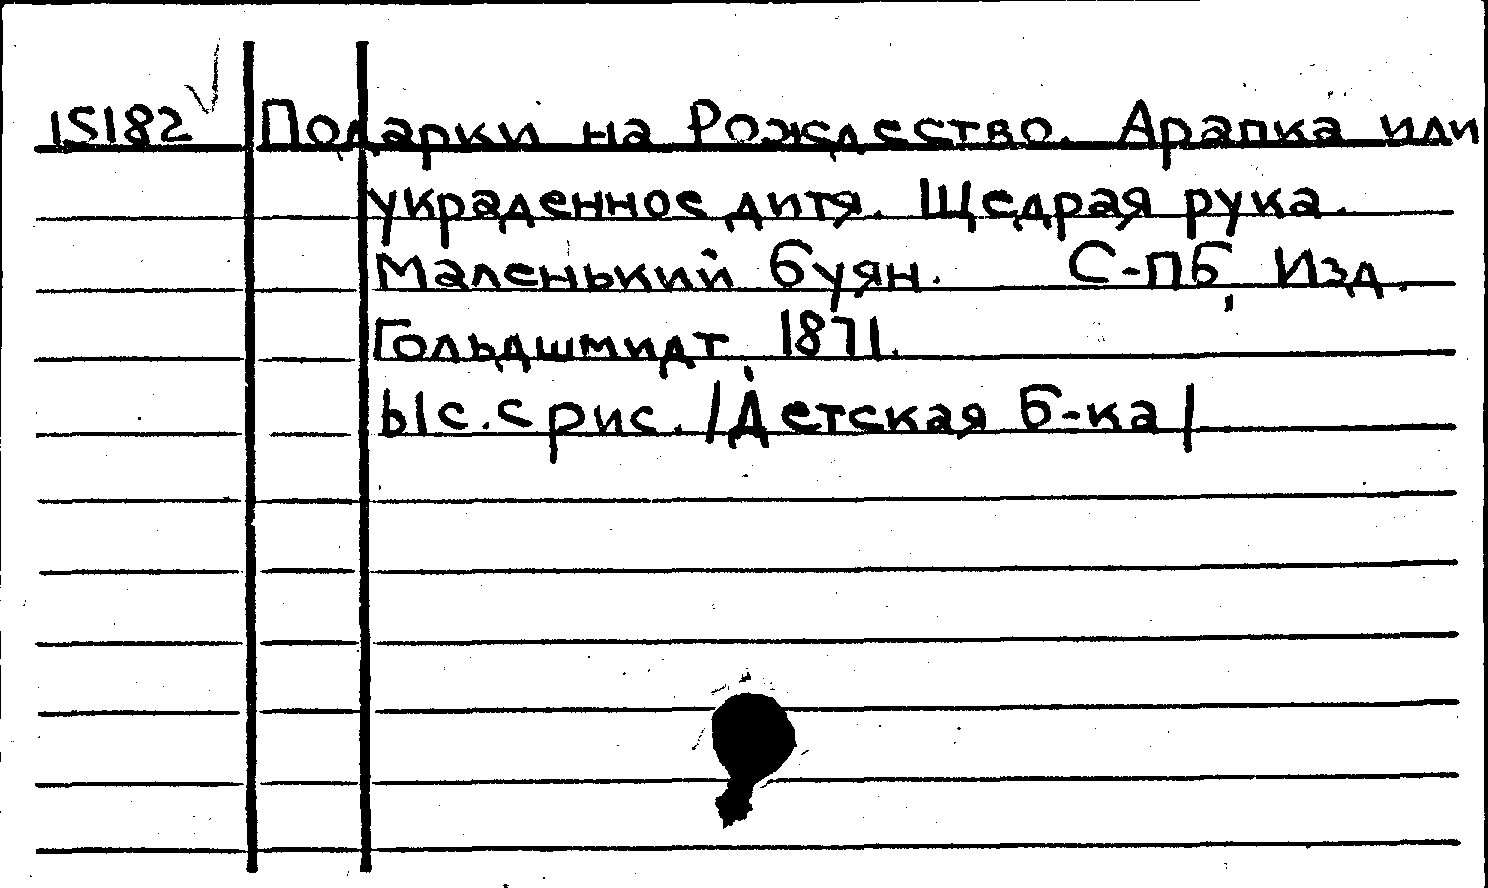 15182 Подарки на Рождество. Арапка или
украденное дитя. Щедрая рука.
Маленький буян. С-ПБ, Изд.
Гольдшмидт, 1871.
ыс. с рис. /Детская Б-ка/